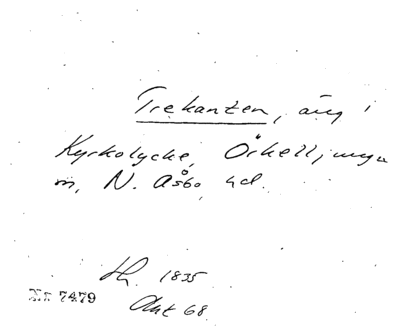 Trekanten, äng i
Kyrkolycke, Örkelljunga
sn, N. Åsbo hd.
Lh. 1835
Akt 68
Nr 7479